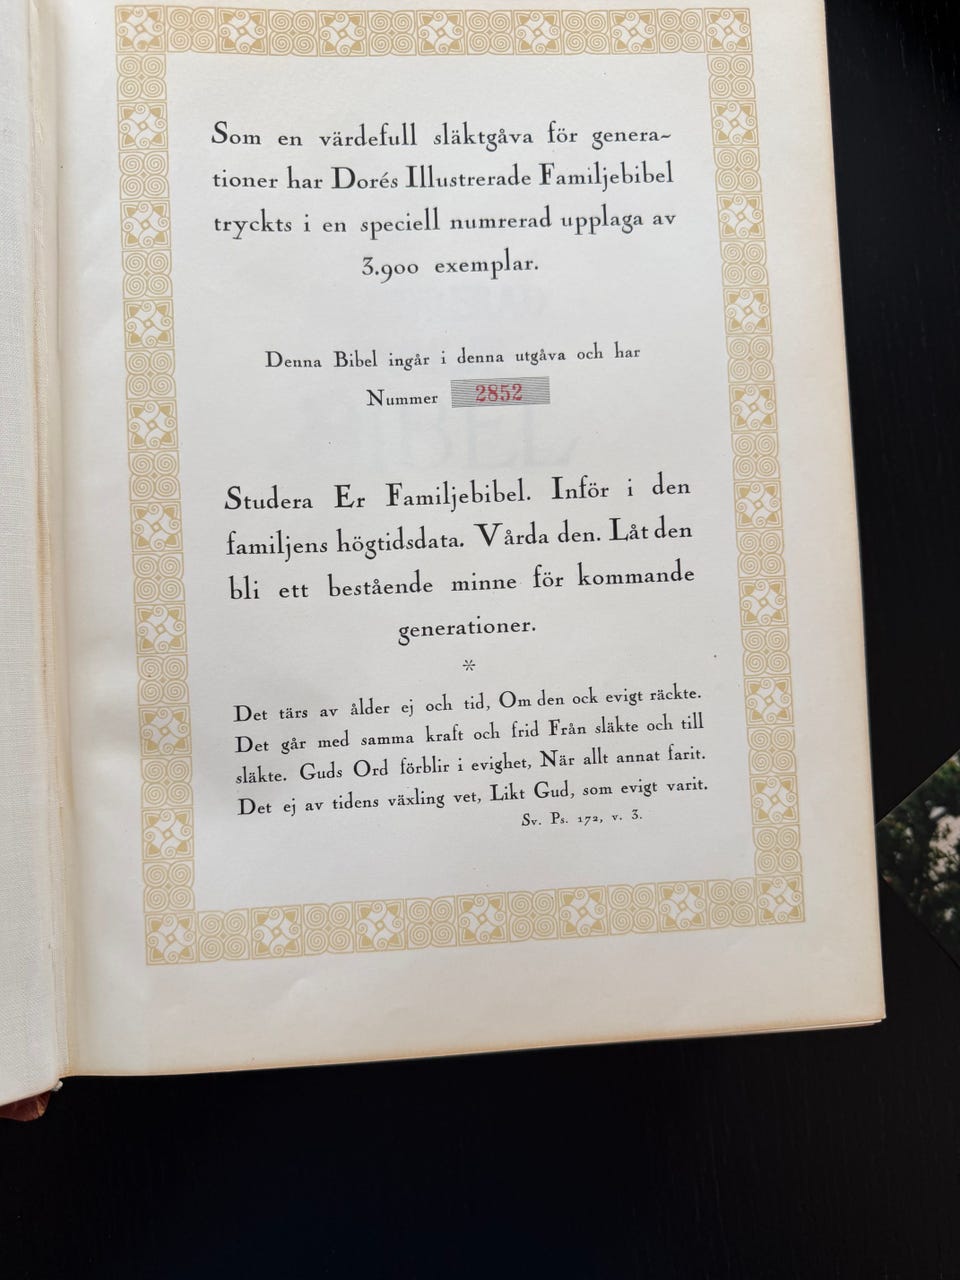 Som en värdefull släktgåva för genera-
tioner har Dorés Illustrerade Familjebibel
tryckts i en speciell numrerad upplaga av
3.900 exemplar.
Denna Bibel ingår i denna utgåva och har
Nummer 2852
Studera Er Familjebibel. Inför i den
familjens högtidsdata. Vårda den. Låt den
bli ett bestående minne för kommande
generationer.
*
Det tärs av ålder ej och tid, Om den ock evigt räckte.
Det går med samma kraft och frid Från släkte och till
släkte. Guds Ord förblir i evighet, När allt annat farit.
Det ej av tidens växling vet, Likt Gud, som evigt varit.
Sv. Ps. 172, v. 3.